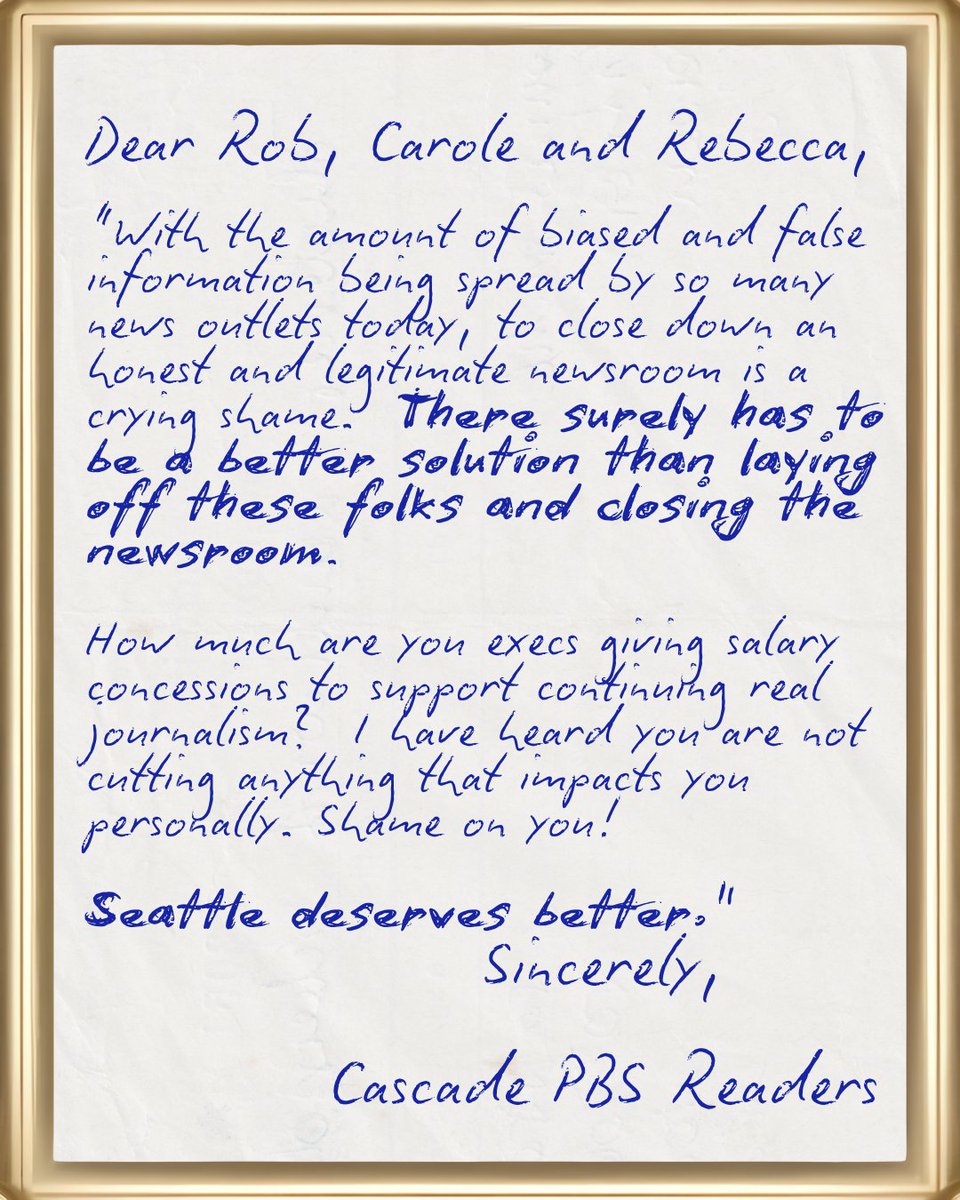 Dear Rob, Carole and Rebecca,
"With the amount of biased and false
information being spread by so many
news outlets today, to close down an
honest and legitimate newsroom is a
crying shame. There surely has to
be a better solution than laying
off these folks and closing the
newsroom.
How much are you execs giving salary
concessions to support continuing real
journalism? I have heard you are not
cutting anything that impacts you
personally. Shame on you!
Seattle deserves better."
Sincerely,
Cascade PBS Readers